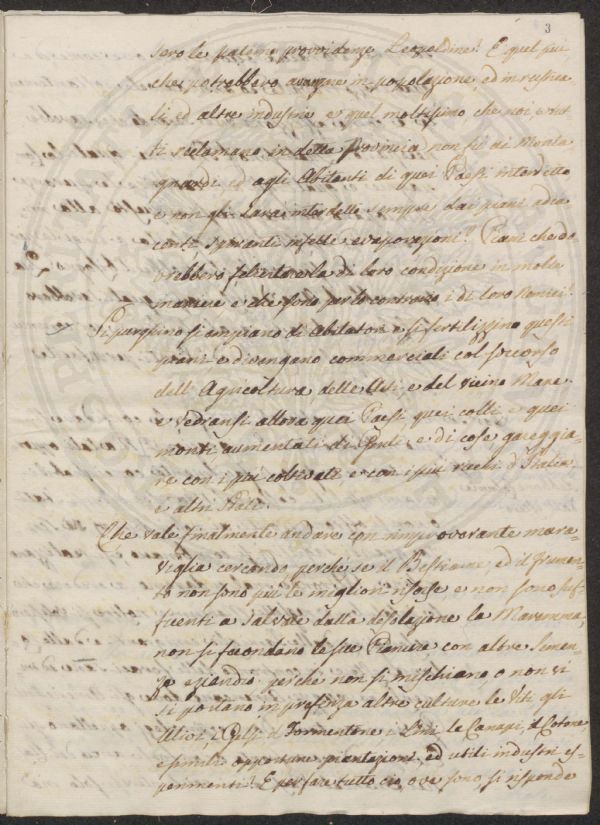 3
sero le paterne provvidenze Leopoldine? E quel più
che potrebbero avanzare in popolazione ed in
ed altre industrie e quel moltissimo che noi
ti reclamano in detta provincia non fù di Monta
gnardi ed agli Abitanti di quei Paesi interdetto
e non gli sarà interdetto sempre dai piani
conti infette evaporazioni? Piani che do
vrebbero felicitare la di loro condizione in molte
maniere e che sono per lo contrario i di loro Nemici?
Si si empiano di Abitatori e si fertilizzino questi
piani e divengano commerciali col soccorso
dell'Agricoltura delle Arti e del vicino Mare
e vedransi allora quei Paesi quei colli e quei
monti aumentati di Genti, e di cose gareggia-
re con i più coltivati e con i più ricchi d'Italia
e altri Stati.
Che vale finalmente andare con rimproverante mara-
viglia cercando perche se il Bestiame ed il Frumen-
to non sono più le migliori risorse e non sono suf-
ficienti a salvare dalla desolazione la Maremma,
non si fecondano le sue Pianure con altre Semen-
ze eziandio perche non si mischiano o non vi
si portano in preferenza altre culture le Viti gli
Ulivi, i Gelsi il Formentone i Lini, le Canapi, il Cotone
e simili opportune piantazioni, ed utili industri es-
perimenti? E per fare tutto ciò ove sono si risponde